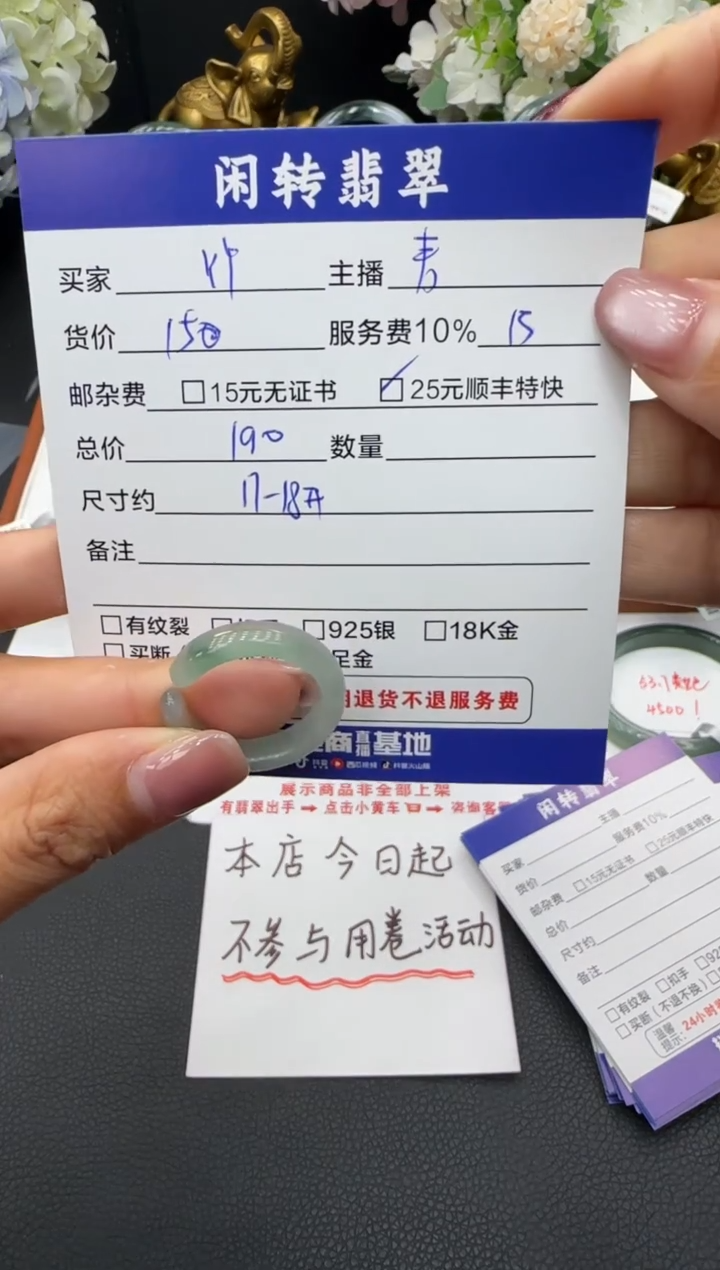 闲转翡翠
买家 主播
货价 150 服务费10% 15
邮杂费 □15元无证书 ☑25元顺丰特快
总价 190 数量
尺寸约 17-18开
备注
□有纹裂 □925银 □18K金
□买断 足金
退货不退服务费
商直播基地
抖音 西瓜视频 抖音火山版
展示商品非全部上架
有翡翠出手→点击小黄车→咨询客
本店今日起
不参与用卷活动
63.7
4800！
闲转翡翠
买家 主播
货价 服务费10%
邮杂费 □15元无证书 □25元顺丰特快
总价 数量
尺寸约
备注
□有纹裂 □扣手 □92
□买断（不退不换）
温馨提示：24小时